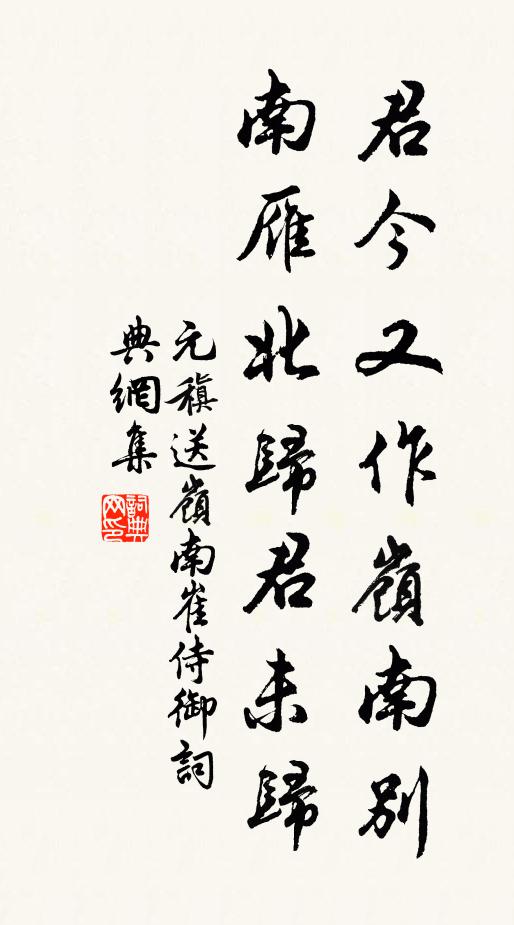 君今又作嶺南別
南雁北歸君未歸
元稹送嶺南崔侍御詞
典網集
詞典網印